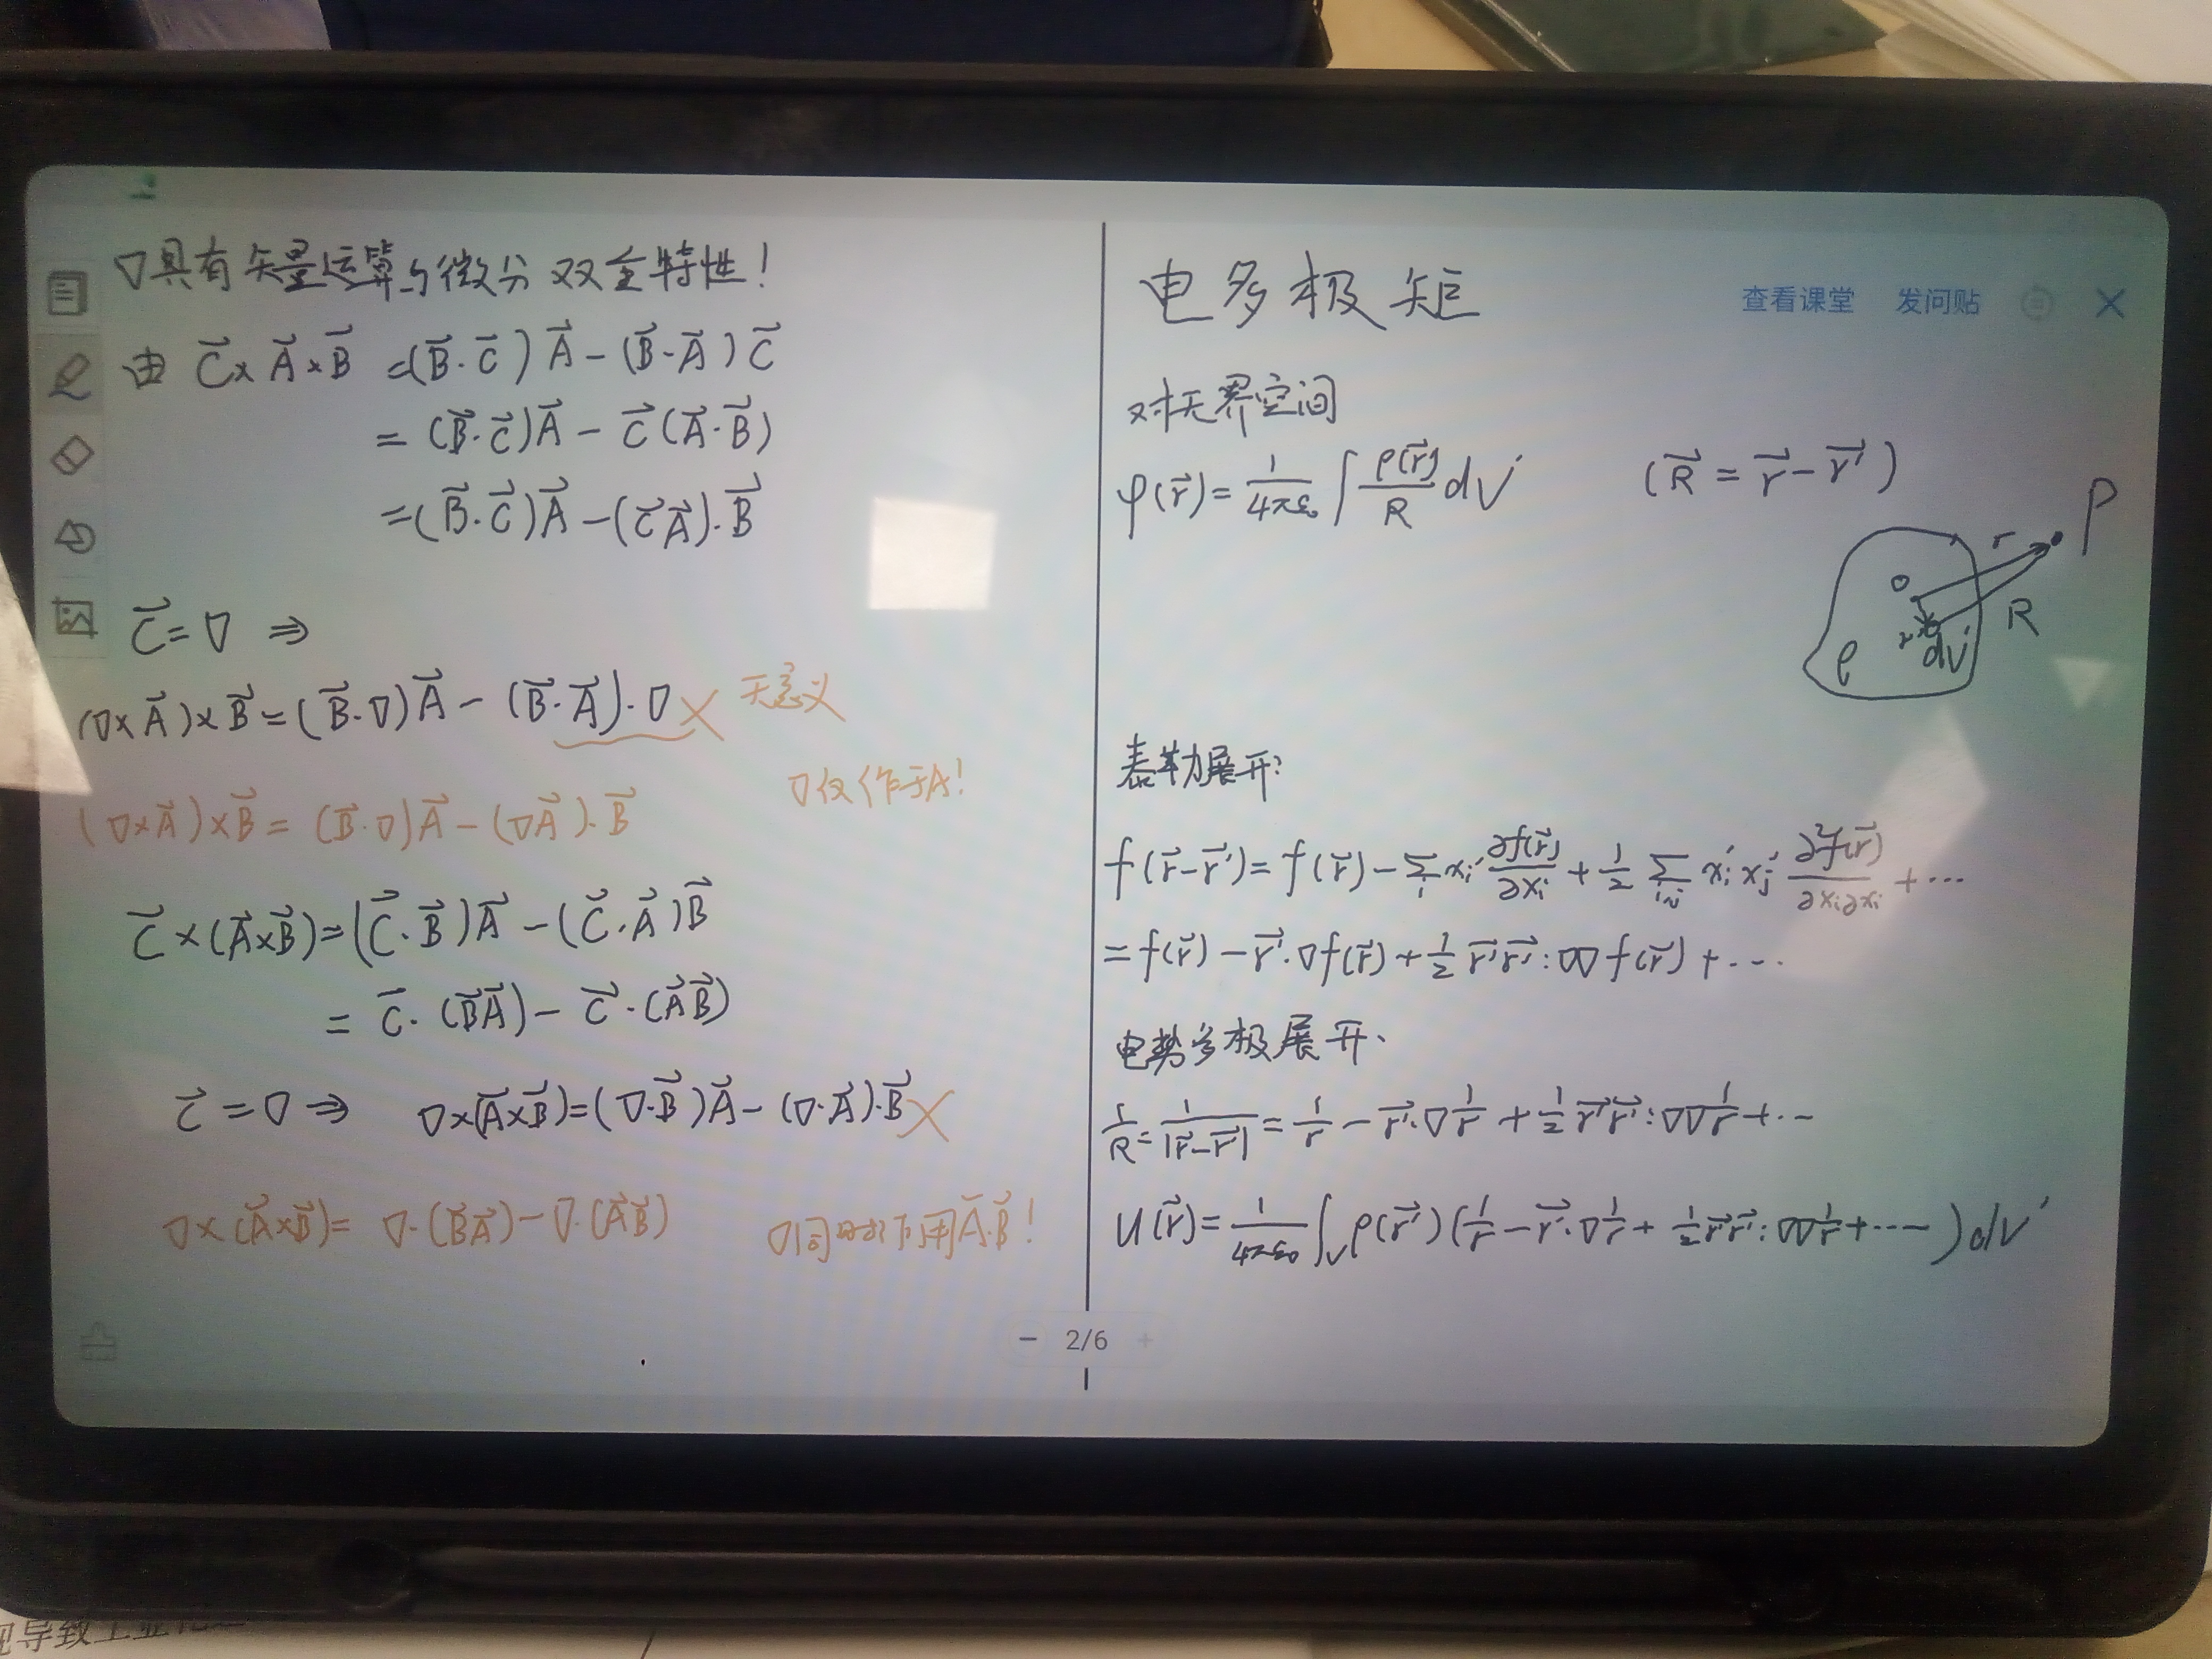 ∇具有矢量运算与微分双重特性!
由 C⃗×A⃗×B⃗ =(B⃗·C⃗)A⃗-(B⃗·A⃗)C⃗
=(B⃗·C⃗)A⃗-C⃗(A⃗·B⃗)
=(B⃗·C⃗)A⃗-(C⃗A⃗)·B⃗
C⃗=∇ ⇒
(∇×A⃗)×B⃗=(B⃗·∇)A⃗-(B⃗·A⃗)·∇ × 无意义
∇仅作于A!
(∇×A⃗)×B⃗=(B⃗·∇)A⃗-(∇A⃗)·B⃗
C⃗×(A⃗×B⃗)=(C⃗·B⃗)A⃗-(C⃗·A⃗)B⃗
=C⃗·(B⃗A⃗)-C⃗·(A⃗B⃗)
C⃗=∇ ⇒ ∇×(A⃗×B⃗)=(∇·B⃗)A⃗-(∇·A⃗)·B⃗ ×
∇×(A⃗×B⃗)=∇·(B⃗A⃗)-∇·(A⃗B⃗) ∇同时作用A⃗·B⃗!
2/6
电多极矩
查看课堂 发问贴
对无界空间
φ(r⃗)=1/4πε₀ ∫ρ(r⃗')/R dV' (R⃗=r⃗-r⃗')
P
r
o
R
r'
dV'
ρ
泰勒展开:
f(r⃗-r⃗')=f(r⃗)-∑ᵢ xᵢ' ∂f(r⃗)/∂xᵢ+1/2 ∑ᵢ,ⱼ xᵢ'xⱼ' ∂²f(r⃗)/∂xᵢ∂xᵢ+···
=f(r⃗)-r⃗'·∇f(r⃗)+1/2 r⃗'r⃗':∇∇f(r⃗)+···
电势多极展开.
1/R=1/|r⃗-r⃗'|=1/r-r⃗'·∇1/r+1/2 r⃗'r⃗':∇∇1/r+···
U(r⃗)=1/4πε₀ ∫ᵥρ(r⃗')(1/r-r⃗'·∇1/r+1/2 r⃗'r⃗':∇∇1/r+····)dV'